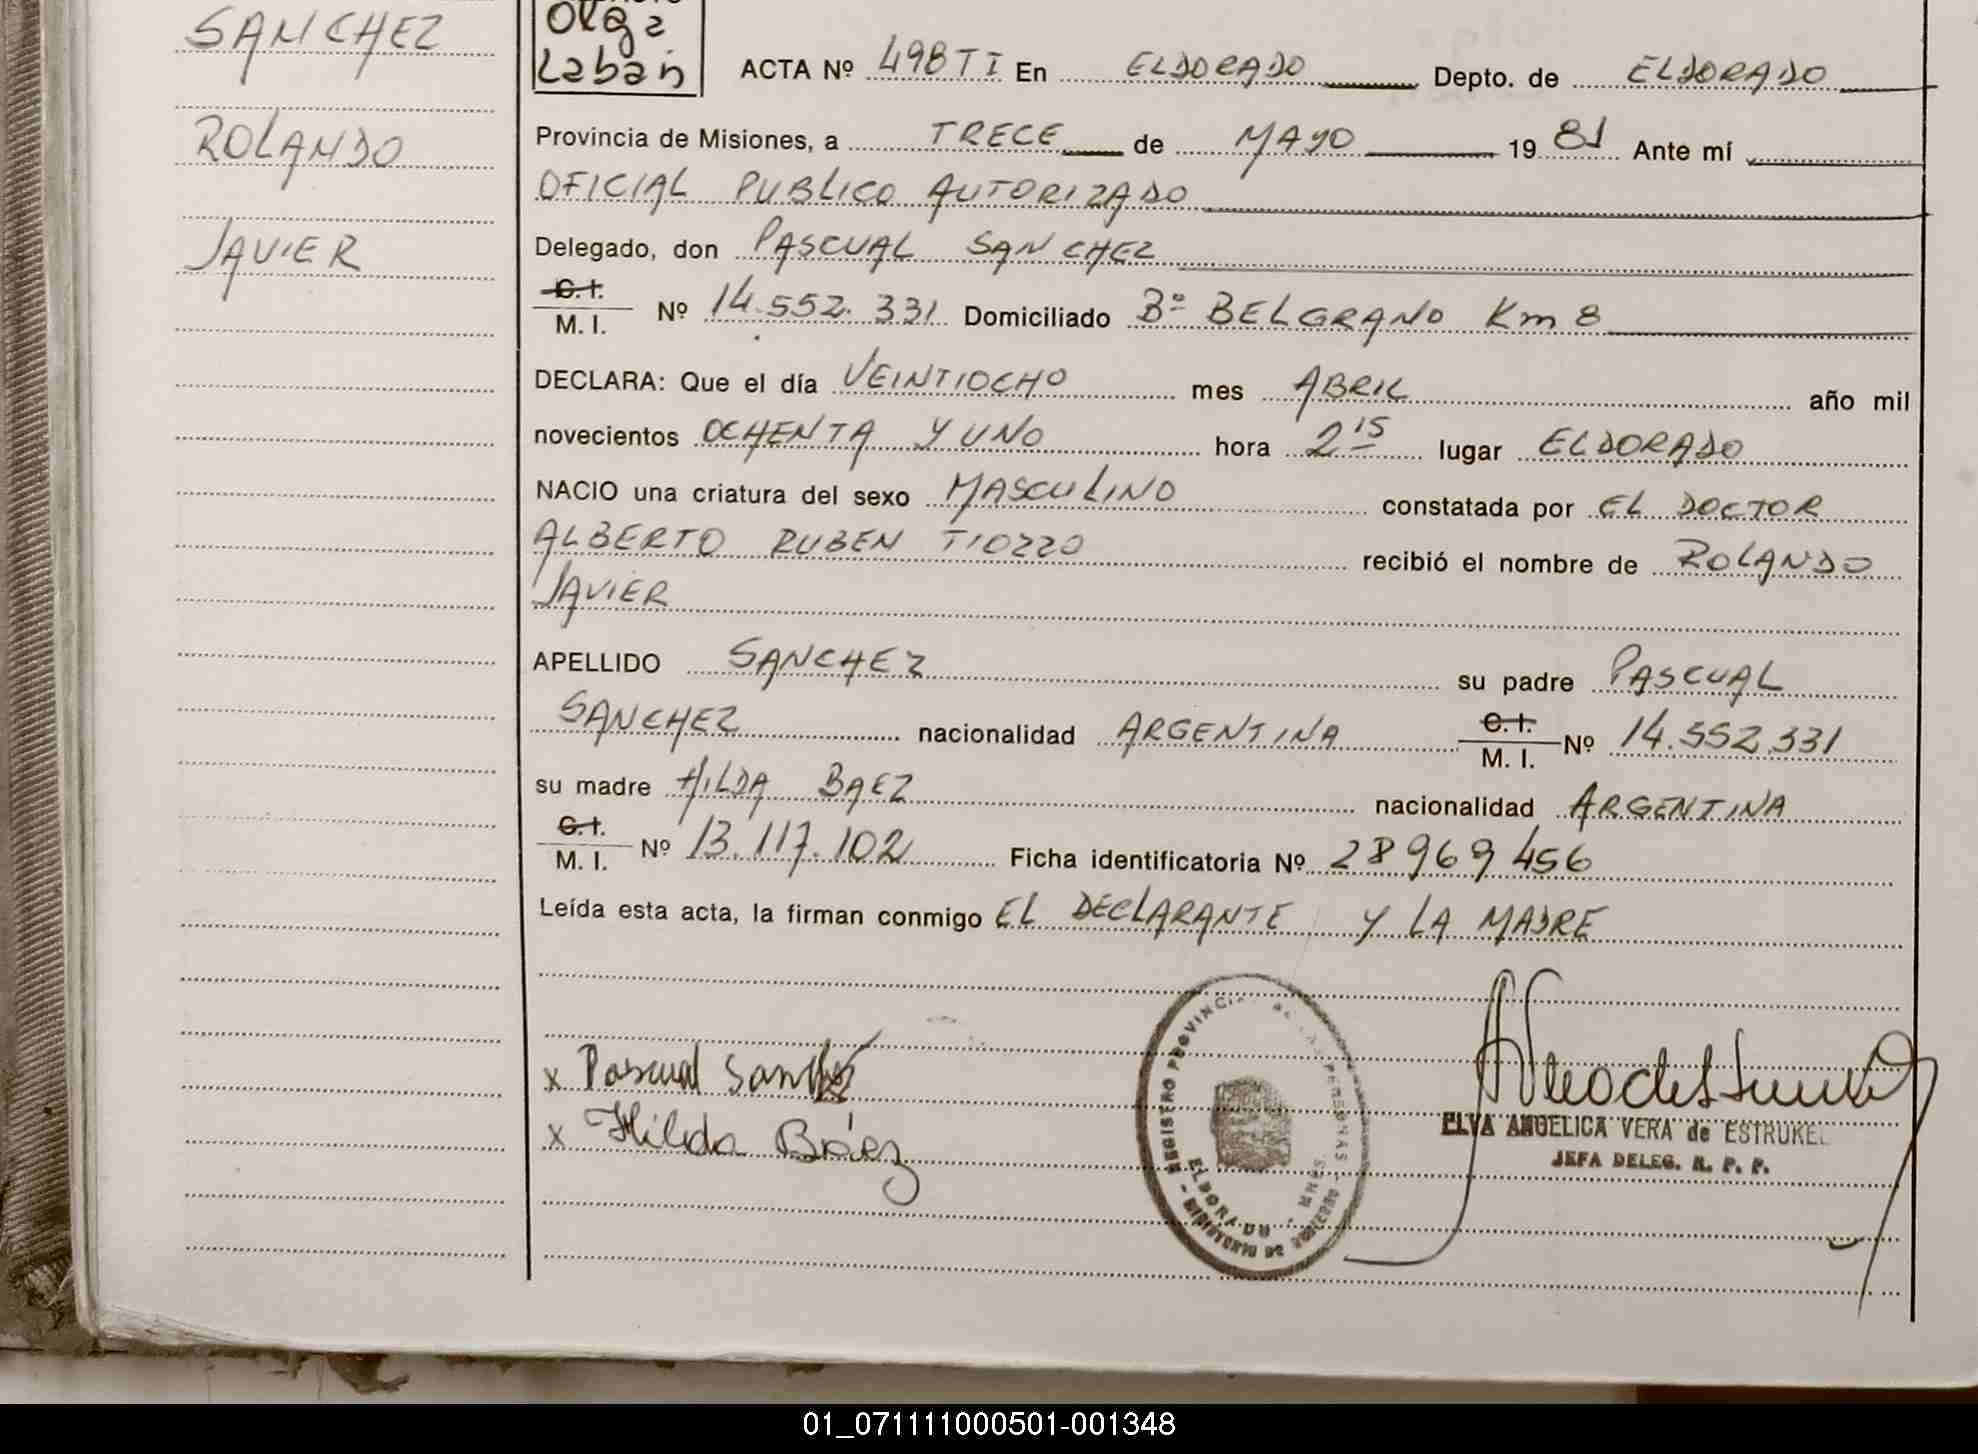 SANCHEZ
ROLANDO
JAVIER
Olga
Laban
ACTA Nº 498 TI En ELDORADO Depto. de ELDORADO
Provincia de Misiones, a TRECE de MAYO 19 81 Ante mí
OFICIAL PUBLICO AUTORIZADO
Delegado, don PASCUAL SANCHEZ
C. I.
M. I. Nº 14.552.331 Domiciliado Bº BELGRANO Km 8
DECLARA: Que el día VEINTIOCHO mes ABRIL año mil
novecientos OCHENTA Y UNO hora 2 15 lugar ELDORADO
NACIO una criatura del sexo MASCULINO constatada por EL DOCTOR
ALBERTO RUBEN TIOZZO recibió el nombre de ROLANDO
JAVIER
APELLIDO SANCHEZ su padre PASCUAL
SANCHEZ nacionalidad ARGENTINA C. I. M. I. Nº 14.552.331
su madre HILDA BAEZ nacionalidad ARGENTINA
C. I.
M. I. Nº 13.117.102 Ficha identificatoria Nº 28969456
Leída esta acta, la firman conmigo EL DECLARANTE Y LA MADRE
x Pascual Sanchez
x Hilda Báez
REGISTRO PROVINCIAL DE LAS PERSONAS
MINISTERIO DE GOBIERNO
ELDORADO - MNES
ELVA ANGELICA VERA de ESTRUKEL
JEFA DELEG. R. P. P.
01_071111000501-001348